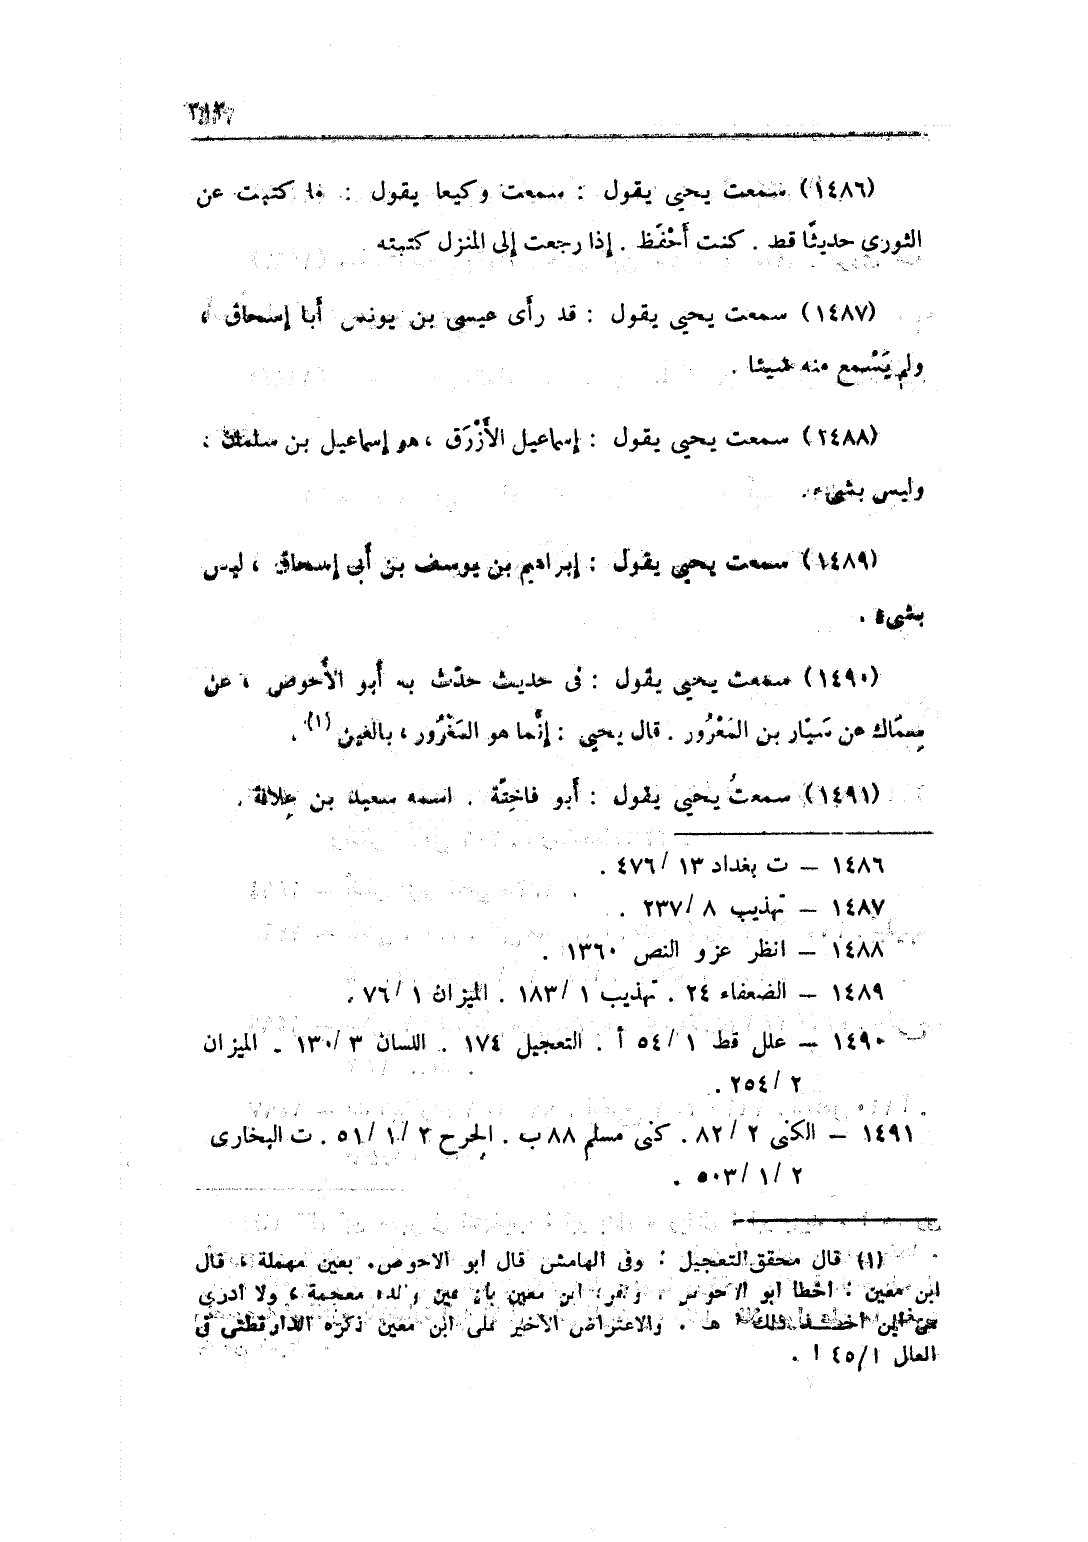 (١٤٨٦) سمعت يحيى يقول : سمعت وكيعا يقول : ما كتبت عن
الثورى حديثًا قط . كنت أَحْفَظ . إذا رجعت إلى المنزل كتبته
(١٤٨٧) سمعت يحيى يقول : قد رأى عيسى بن يونس أبا إسحاق ،
ولم يَسْمع منه شيئا .
(٢٤٨٨) سمعت يحيى يقول : إسماعيل الأَزْرَق ، هو إسماعيل بن سلمان ،
وليس بشىء .
(١٤٨٩) سمعت يحيى يقول : إبراهيم بن يوسف بن أبى إسحاق ، ليس
بشىء .
(١٤٩٠) سمعت يحيى يقول : فى حديث حدّث به أبو الأحوص ، عن
سِمّاك عن سَيّار بن المَعْرُور . قال يحيى : إنَّما هو المَغْرُور ، بالغين (١) .
(١٤٩١) سمعتُ يحيى يقول : أبو فاخِتّة . اسمه سعيد بن عِلاقة .
١٤٨٦ – ت بغداد ١٣ /٤٧٦ .
١٤٨٧ – تهذيب ٨ /٢٣٧ .
١٤٨٨ – انظر عزو النص ١٣٦٠ .
١٤٨٩ – الضعفاء ٢٤ . تهذيب ١ /١٨٣ . الميزان ١ /٧٦ .
١٤٩٠ – علل قط ١ /٥٤ أ . التعجيل ١٧٤ . اللسان ٣ /١٣٠ – الميزان
٢ /٢٥٤ .
١٤٩١ – الكنى ٢ /٨٢ . كنى مسلم ٨٨ب . الجرح ٢ /١ /٥١ . ت البخارى
٢ /١ /٥٠٣ .
(١) قال محقق التعجيل : وفى الهامش قال أبو الاحوص . بعين مهملة ، قال
ابن معين : أخطا أبو الاحوص ، ابن معين بأن عين والده معجمة ، ولا أدرى
من أين أخذ ذلك اهـ . والاعتراض الاخير على ابن معين ذكره الدارقطنى فى
العلل ١ /٤٥ أ .